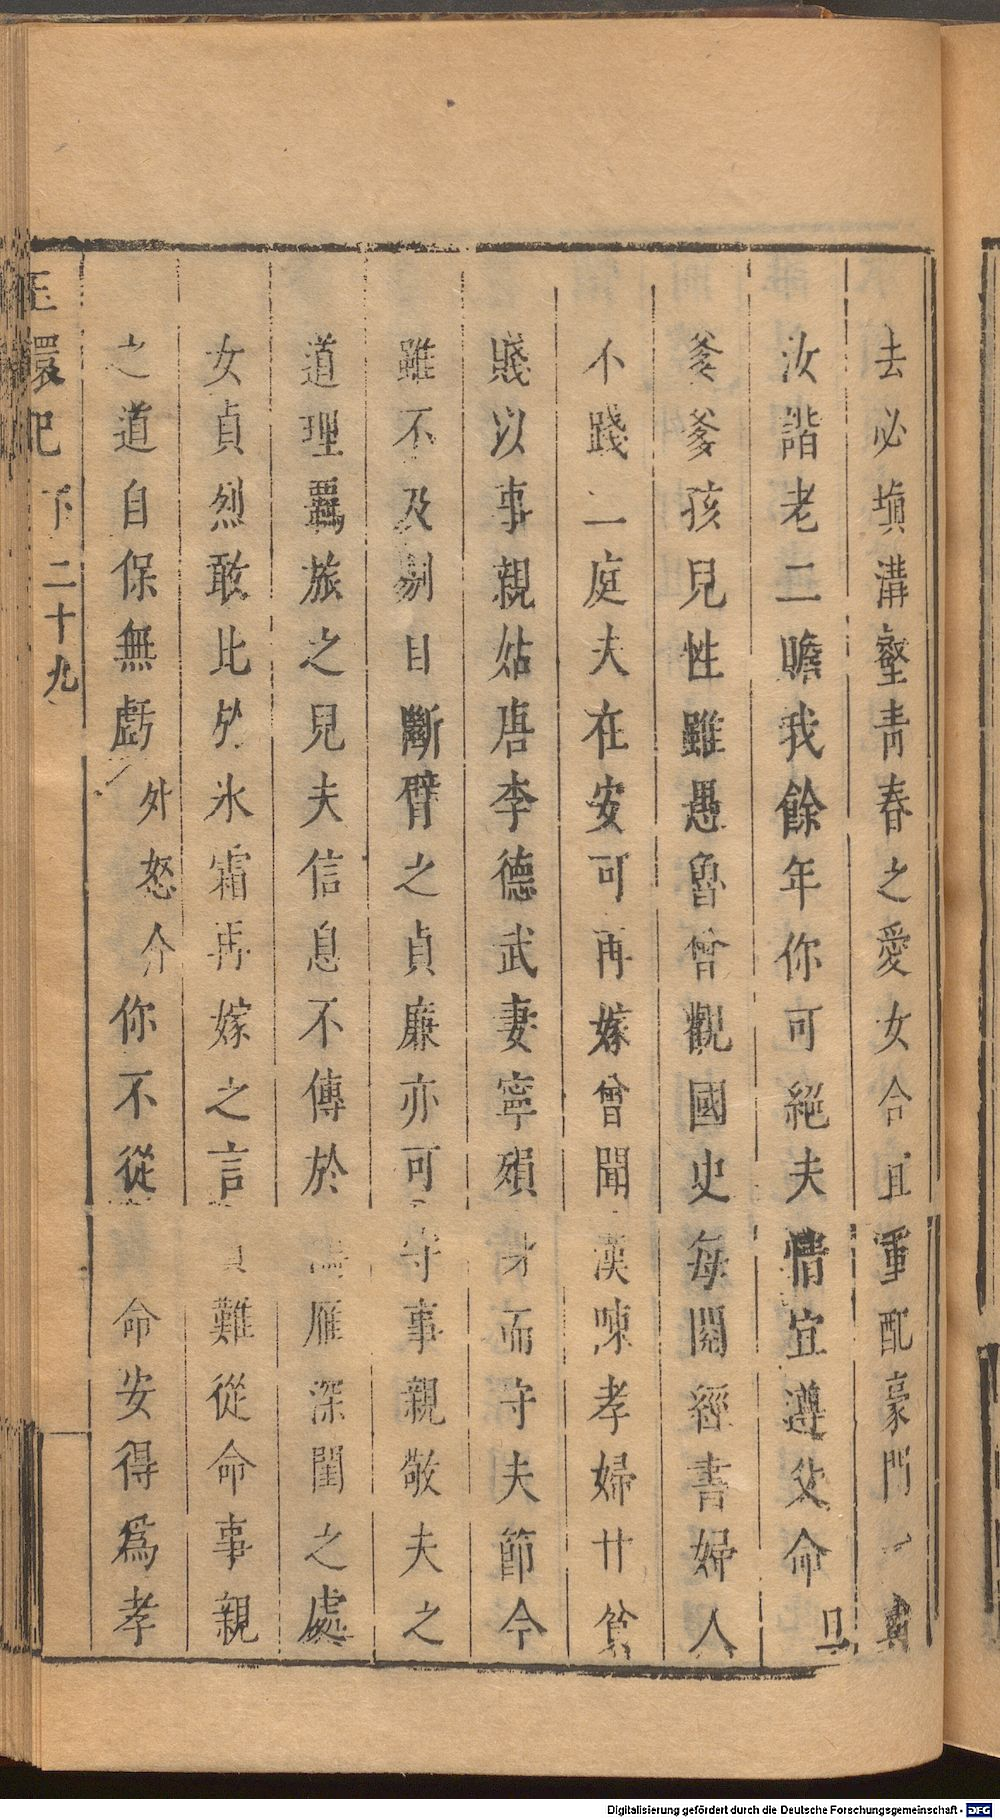 去必塡溝壑靑春之愛女合且重配豪門一
汝諧老二瞻我餘年你可絕夫情宜遵父命旦
爹爹孩兒性雖愚魯曾觀國史每閱經書婦人
不踐二庭夫在安可再嫁曾聞漢陳孝婦甘貧
賤以事親姑唐李德武妻寧殞身而守夫節今
雖不及剔目斷臂之貞廉亦可守事親敬夫之
道理羈旅之兒夫信息不傳於雁深閨之處
女貞烈敢比於氷霜再嫁之言難從命事親
之道自保無虧外怒介你不從命安得爲孝
玉環記 下 二十九
Digitalisierung gefördert durch die Deutsche Forschungsgemeinschaft - DFG